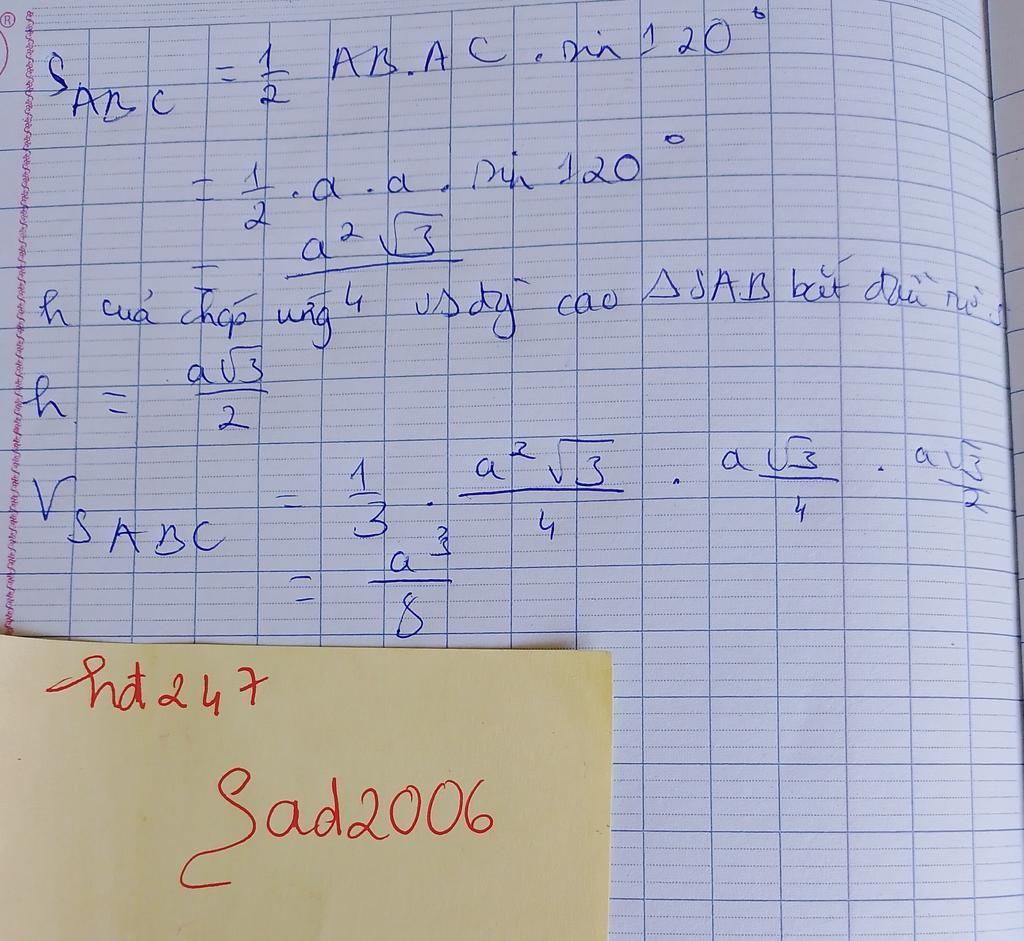 ®
S_ABC = 1/2 AB.AC . sin 120°
= 1/2 . a . a . sin 120°
= a² √3 / 4
h cuả chóp ứng Δ SAB
h = a√3 / 2
V_SABC = 1/3 . a² √3 / 4 . a √3 / 4 . a√3 / 2
= a³ / 8
hđ247
Sad2006